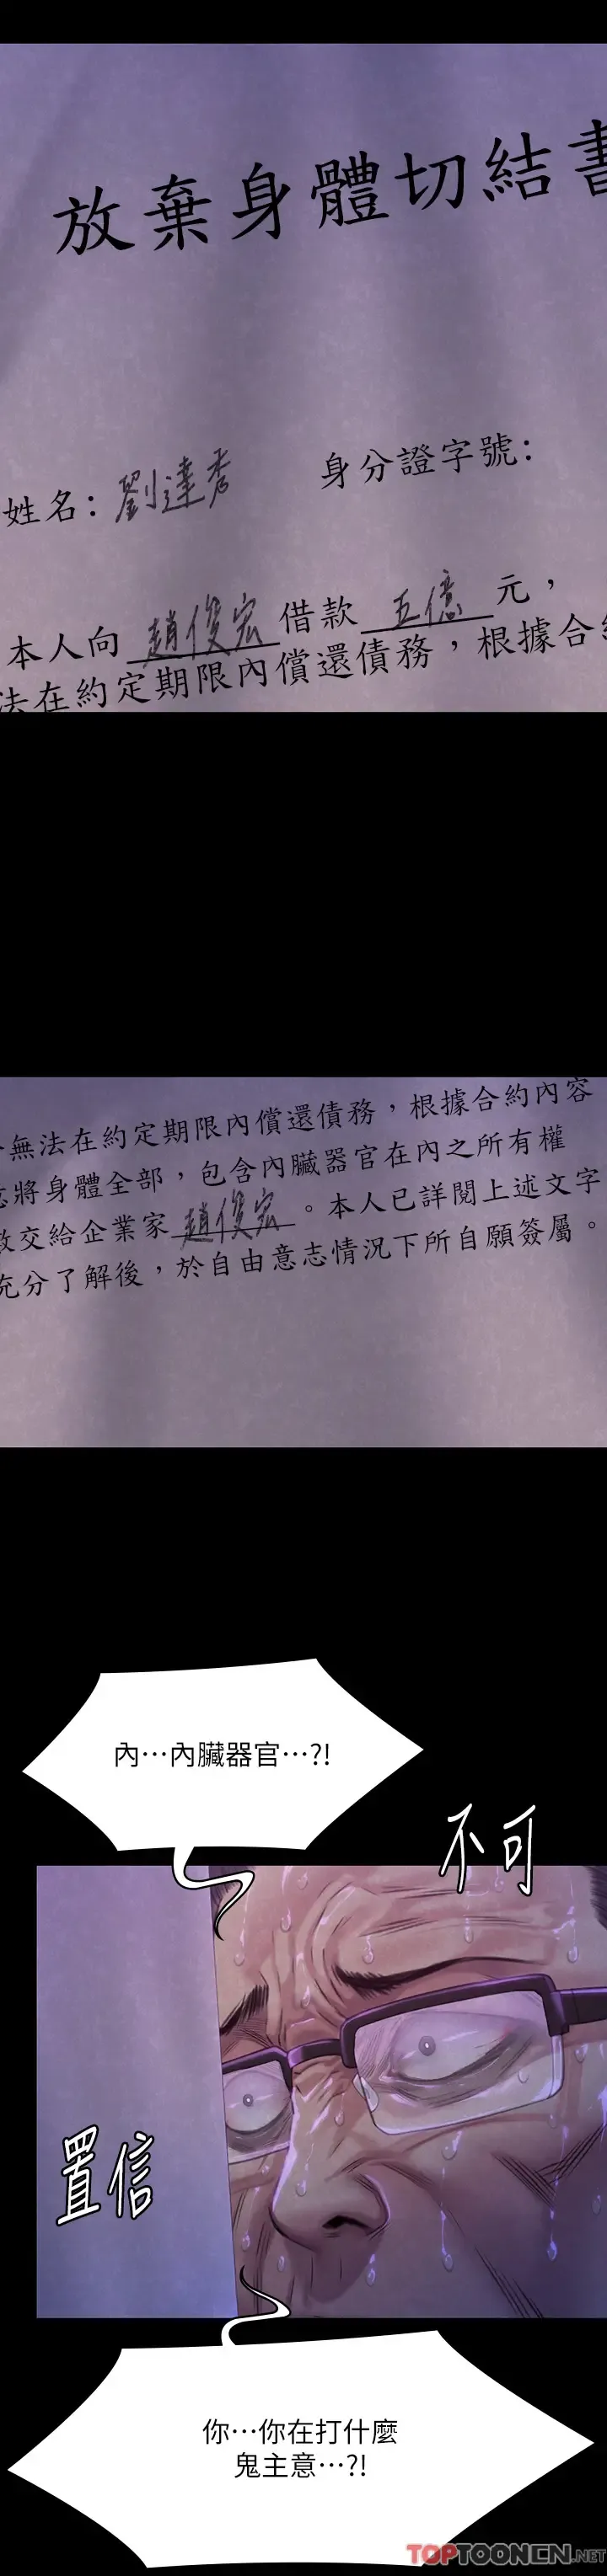 放棄身體切結書
姓名：劉達秀 身分證字號：
本人向 趙俊宏 借款 五億 元，
法在約定期限內償還債務，根據合約
無法在約定期限內償還債務，根據合約內容
將身體全部，包含內臟器官在內之所有權
交給企業家 趙俊宏 。本人已詳閱上述文字
充分了解後，於自由意志情況下所自願簽屬。
內…內臟器官…?!
不可
置信
你…你在打什麼
鬼主意…?!
TOPTOONCN.NET